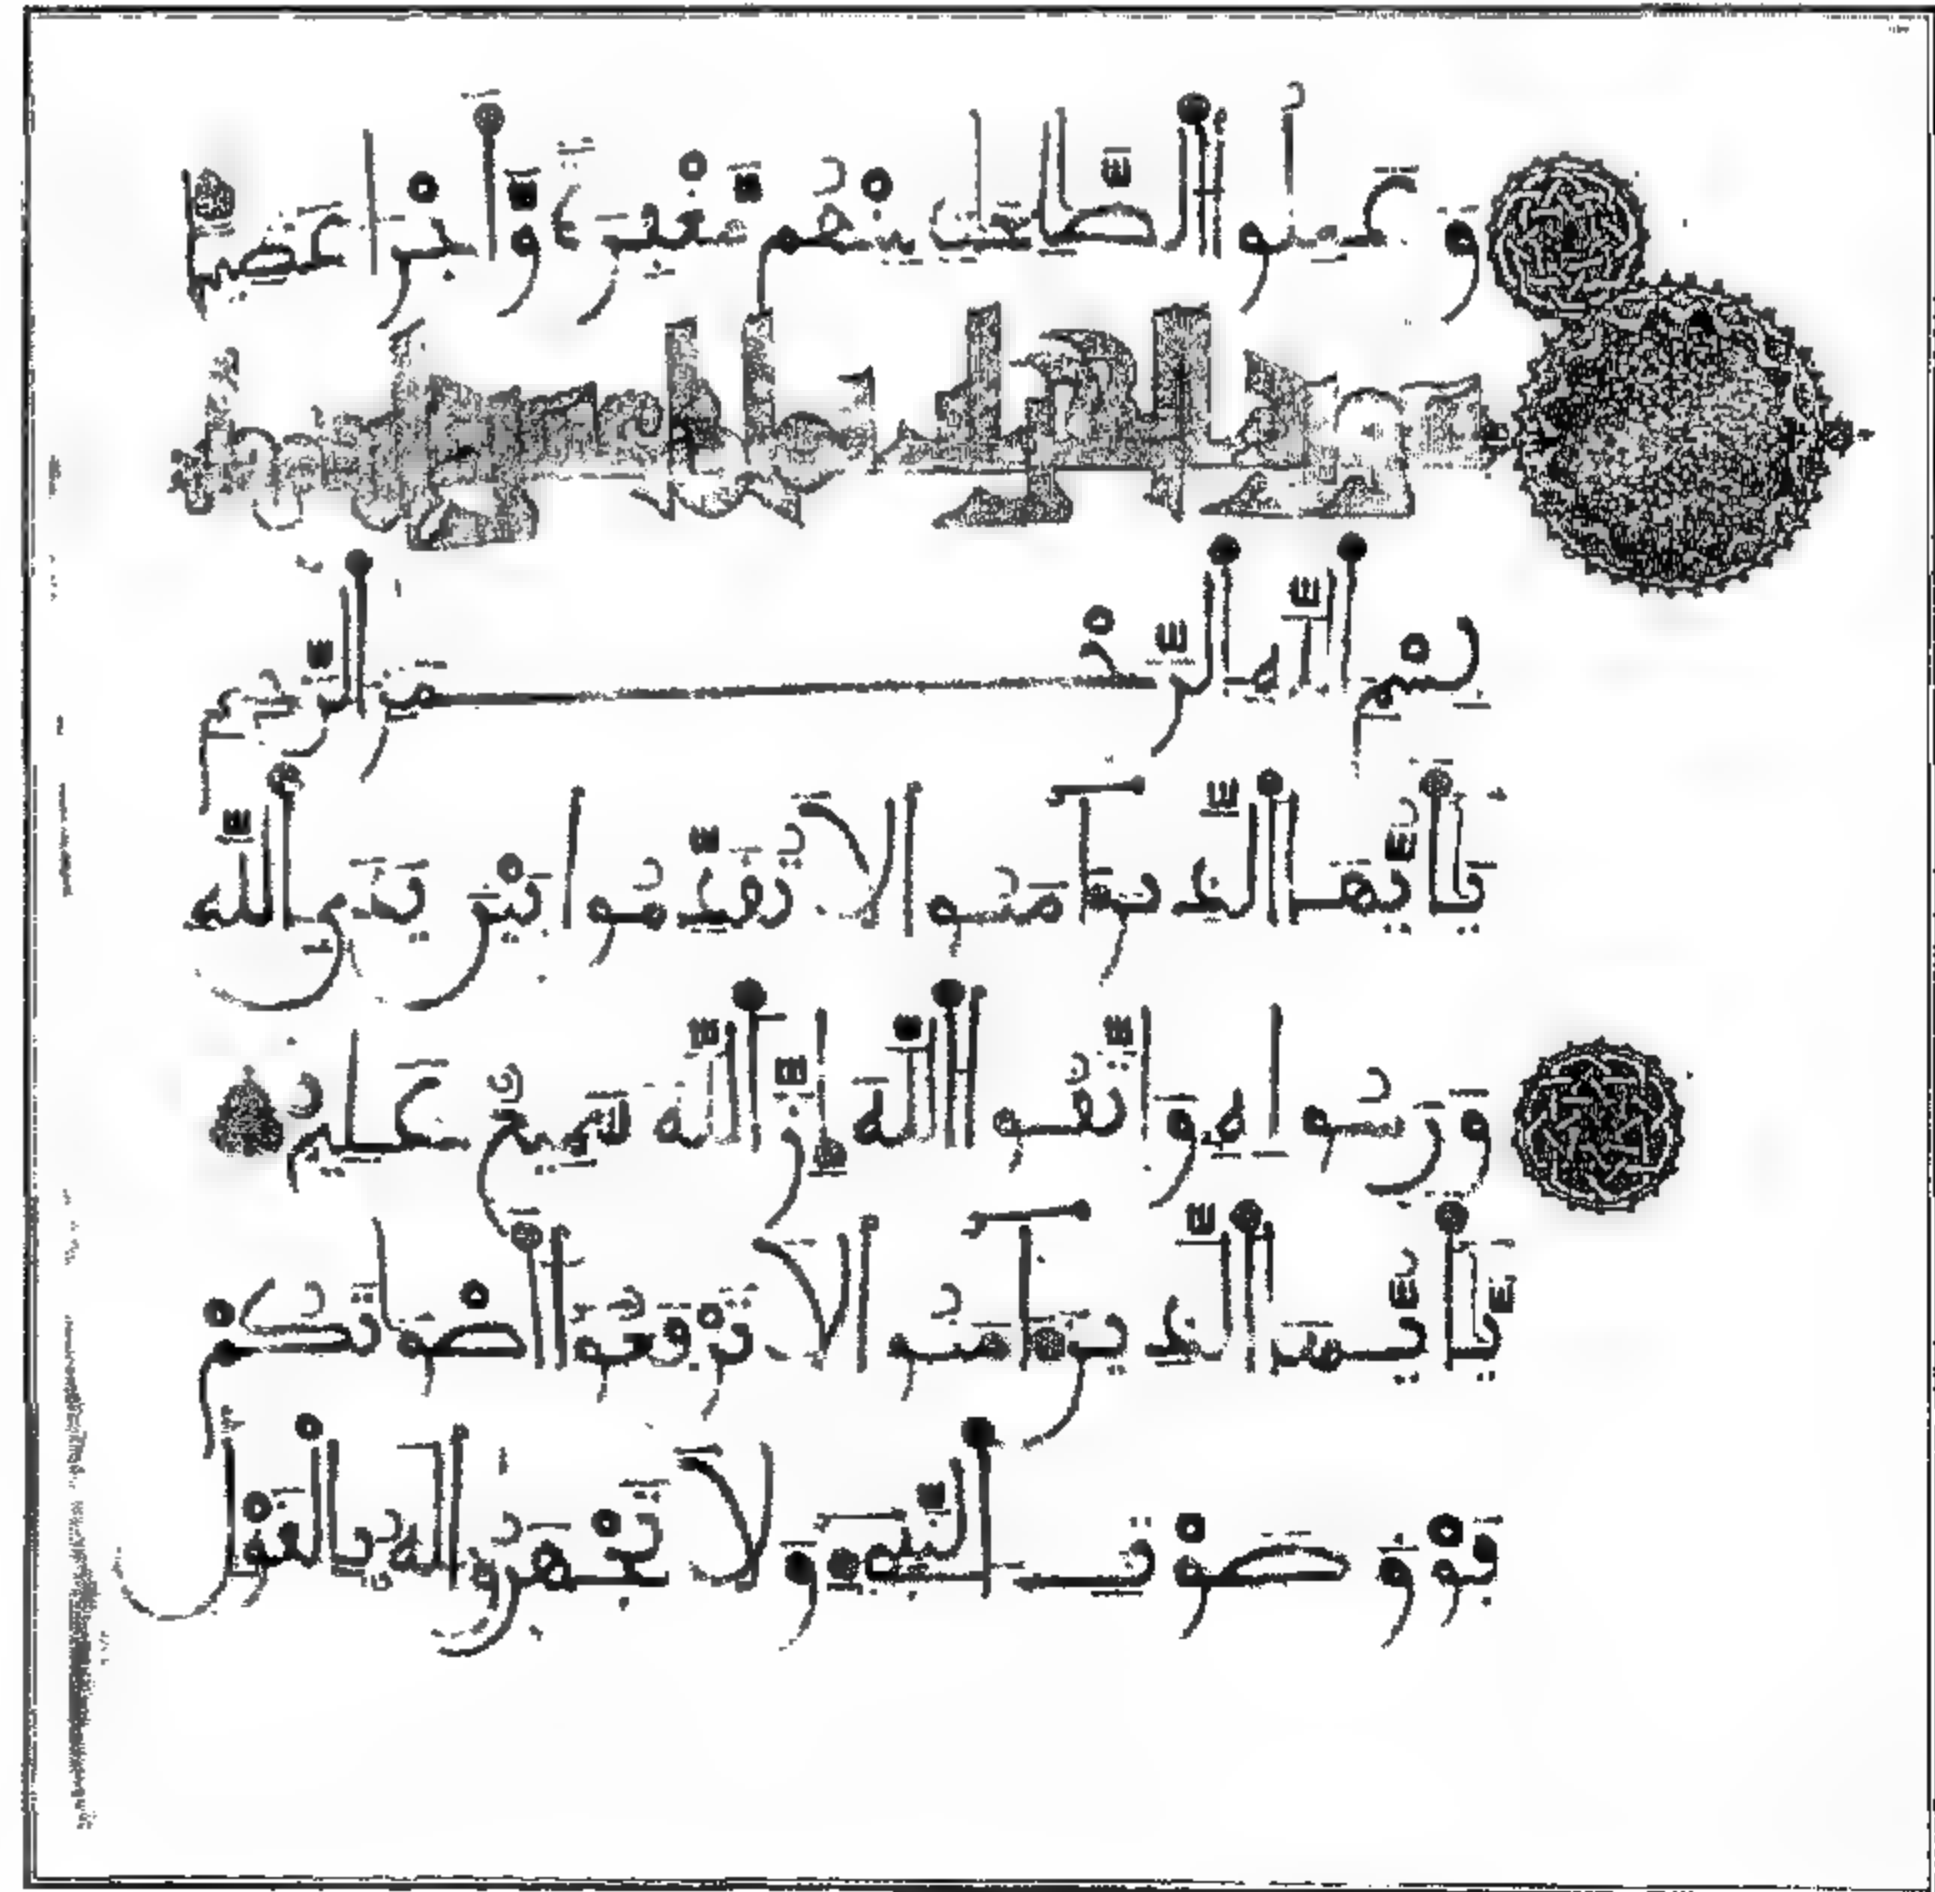 وَعَمِلُوا الصَّالِحَاتِ مِنْهُم مَّغْفِرَةً وَأَجْرًا عَظِيمًا
بِسْمِ اللَّهِ الرَّحْمَٰنِ الرَّحِيمِ
يَا أَيُّهَا الَّذِينَ آمَنُوا لَا تُقَدِّمُوا بَيْنَ يَدَيِ اللَّهِ
وَرَسُولِهِ وَاتَّقُوا اللَّهَ إِنَّ اللَّهَ سَمِيعٌ عَلِيمٌ
يَا أَيُّهَا الَّذِينَ آمَنُوا لَا تَرْفَعُوا أَصْوَاتَكُمْ
فَوْقَ صَوْتِ النَّبِيءِ وَلَا تَجْهَرُوا لَهُ بِالْقَوْلِ